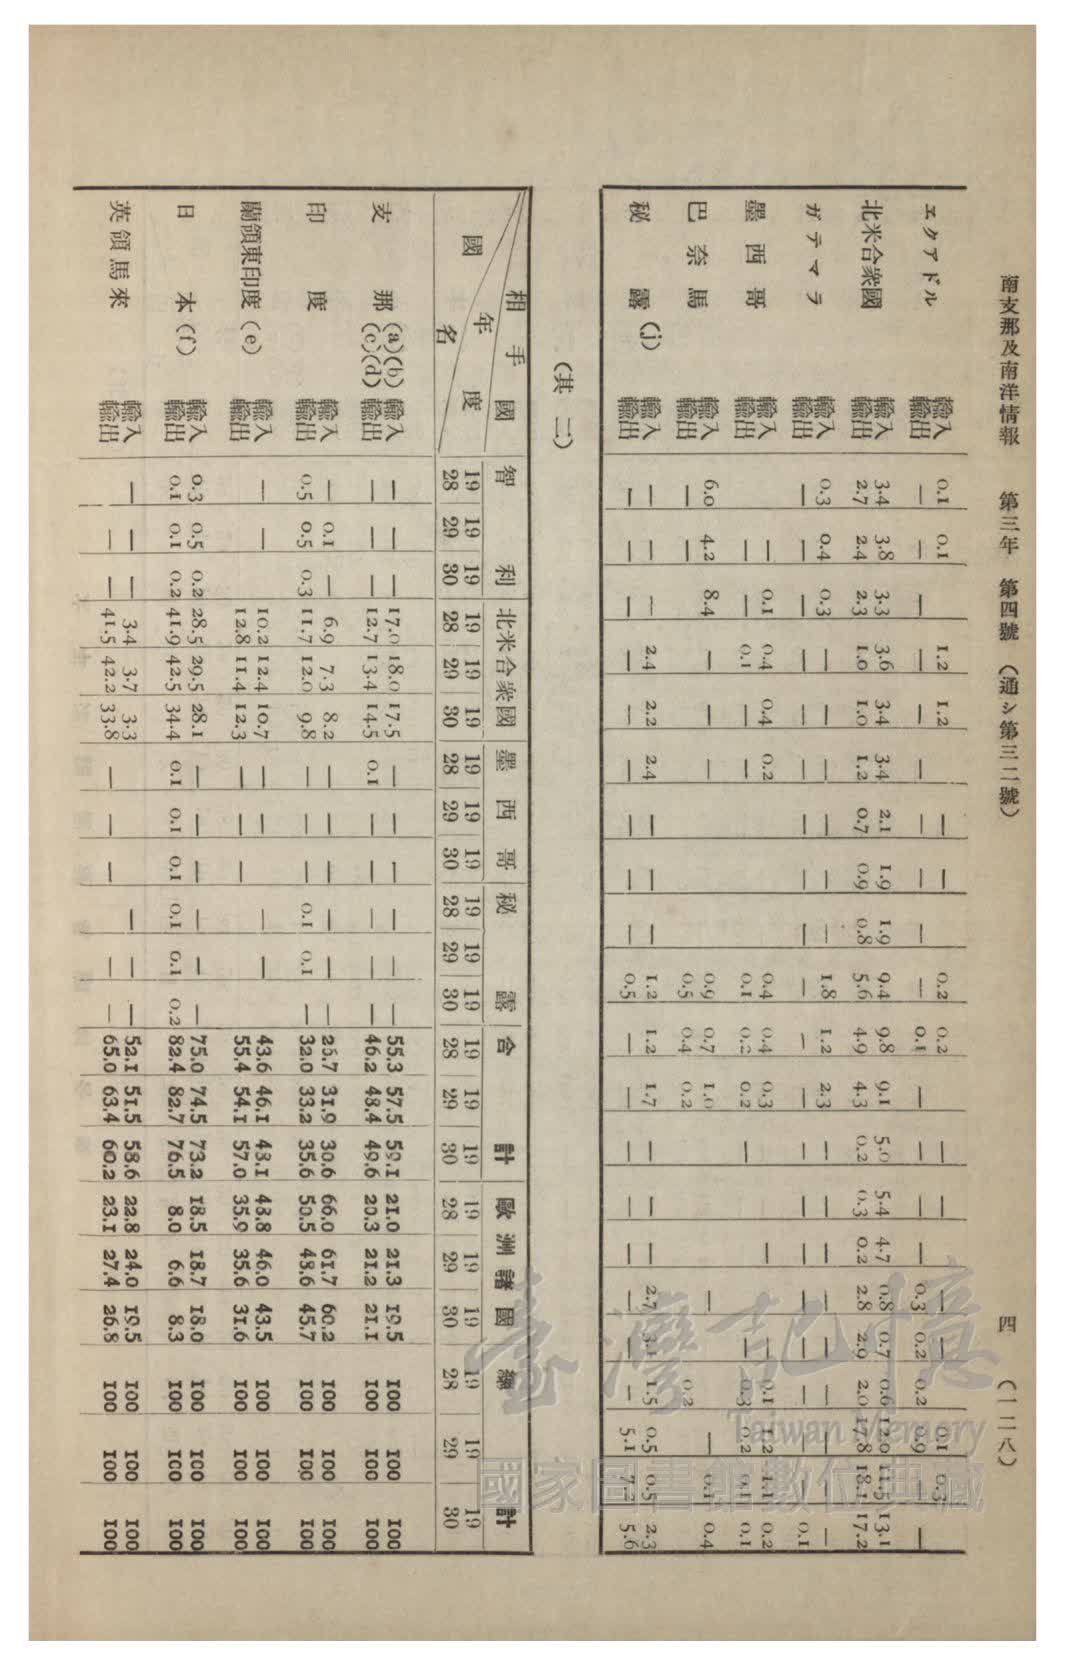 南支那及南洋情報 第三年 第四號 (通シ第三二號) 四 (一二八)
エクアドル 輸入 0.1 0.1 1.2 1.2 — — 0.2 0.2 — — — — 0.1 0.3
輸出 — — — — — — — — — — 0.1 — — — 0.3 0.2 0.2 0.9 — —
北米合衆國 輸入 3.4 3.8 3.3 3.6 3.4 3.4 2.1 1.9 1.9 9.4 9.8 9.1 5.0 5.4 4.7 0.8 0.7 0.6 12.0 11.5 13.1
輸出 2.7 2.4 2.3 1.0 1.0 1.2 0.7 0.9 0.8 5.6 4.9 4.3 0.2 0.3 0.2 2.8 2.9 2.0 17.8 18.1 17.2
ガテマラ 輸入 0.3 0.4 0.3 — — — — — — 1.8 1.2 2.3 — — — — — — — —
輸出 — — — — — — — — — — — — — — — — — — — 0.1
墨西哥 輸入 — 0.1 0.4 0.4 0.2 0.4 0.4 0.3 — — — 0.1 1.2 1.1 0.2
輸出 — — 0.1 — 0.1 0.2 0.2 — — 0.3 0.2 0.1 0.1
巴奈馬 輸入 6.0 4.2 8.4 — — — 0.9 0.7 1.0 — — 0.1 0.4
輸出 — — 0.5 0.4 0.2 0.2
秘露(j) 輸入 — — — 2.4 2.2 2.4 — — — 1.2 1.2 1.7 — — — 2.7 3.1 1.5 0.5 0.5 2.3
輸出 — — — — — — — — — 0.5 — — — — — — — — 5.1 7.2 5.6
(其二)
相手國 智利 北米合衆國 墨西哥 秘露 合計 歐洲諸國 總計
年度 19 19 19 19 19 19 19 19 19 19 19 19 19 19 19 19 19 19 19 19 19
國名 28 29 30 28 29 30 28 29 30 28 29 30 28 29 30 28 29 30 28 29 30
支那 (a)(b) 輸入 — — — 17.0 18.0 17.5 — — — — — — 55.3 57.5 59.1 21.0 21.3 19.5 100 100 100
(c)(d) 輸出 — — — 12.7 13.4 14.5 0.1 — — — — — 46.2 48.4 49.6 20.3 21.2 21.1 100 100 100
印度 輸入 — 0.1 — 6.9 7.3 8.2 — — — — — — 26.7 31.9 30.6 66.0 61.7 60.2 100 100 100
輸出 0.5 0.5 0.3 11.7 12.0 9.8 — — — 0.1 0.1 — 32.0 33.2 35.6 50.5 48.6 45.7 100 100 100
蘭領東印度(e) 輸入 — — 10.2 12.4 10.7 — — — — 43.6 46.1 48.1 48.8 46.0 43.5 100 100 100
輸出 12.8 11.4 12.3 — — — 55.4 54.1 57.0 35.9 35.6 31.6 100 100 100
日本(f) 輸入 0.3 0.5 0.2 28.5 29.5 28.1 — — — — — — 75.0 74.5 73.2 18.5 18.7 18.0 100 100 100
輸出 0.1 0.1 0.2 41.9 42.5 34.4 0.1 0.1 0.1 0.1 0.1 0.2 82.4 82.7 76.5 8.0 6.6 8.3 100 100 100
英領馬來 輸入 — — — 3.4 3.7 3.3 — — — 52.1 51.5 58.6 22.8 24.0 19.5 100 100 100
輸出 — — 41.5 42.2 33.8 — — — — — 65.0 63.4 60.2 23.1 27.4 26.8 100 100 100
臺灣記憶
Taiwan Memory
國家圖書館數位典藏